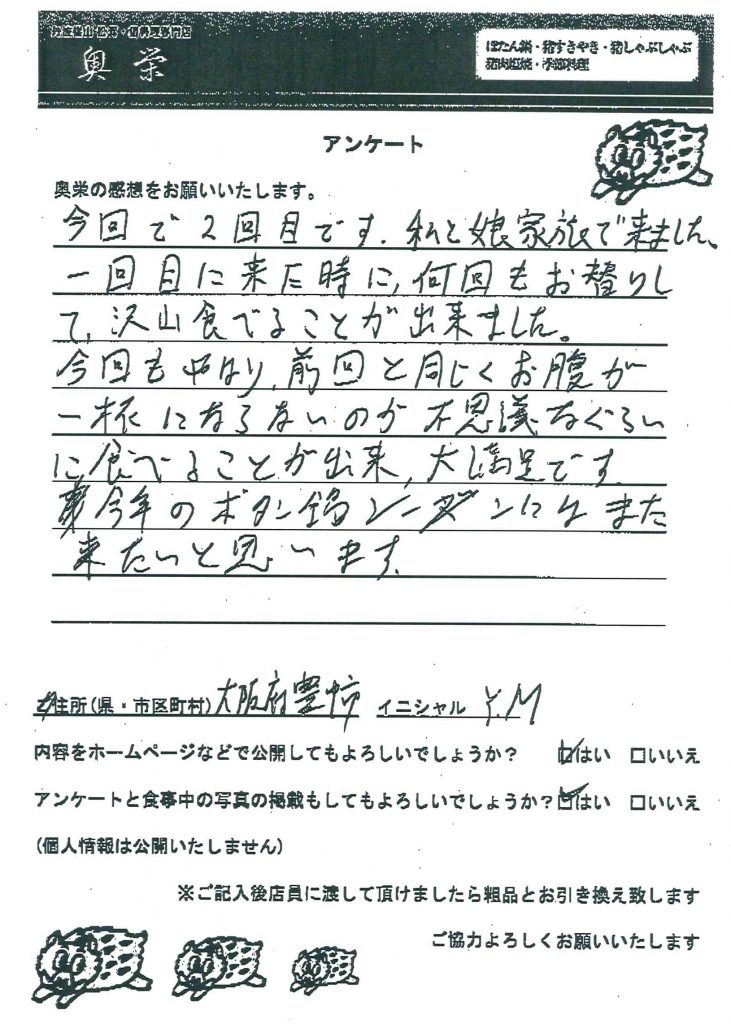 奥栄
ぼたん鍋・猪すきやき・猪しゃぶしゃぶ
猪肉塩焼・季節料理
アンケート
奥栄の感想をお願いいたします。
今回で2回目です. 私と娘家族で来ました、
一回目に来た時に, 何回もお替りし
て, 沢山食べることが出来ました。
今回もやはり, 前回と同じくお腹が
一杯にならないのが不思議なぐらい
に食べることが出来, 大満足です.
今年のボタン鍋シーズンにはまた
来たいと思います.
ご住所(県・市区町村) 大阪府豊中市 イニシャル Y.M
内容をホームページなどで公開してもよろしいでしょうか? ☑はい □いいえ
アンケートと食事中の写真の掲載もしてもよろしいでしょうか? ☑はい □いいえ
(個人情報は公開いたしません)
※ご記入後店員に渡して頂けましたら粗品とお引き換え致します
ご協力よろしくお願いいたします